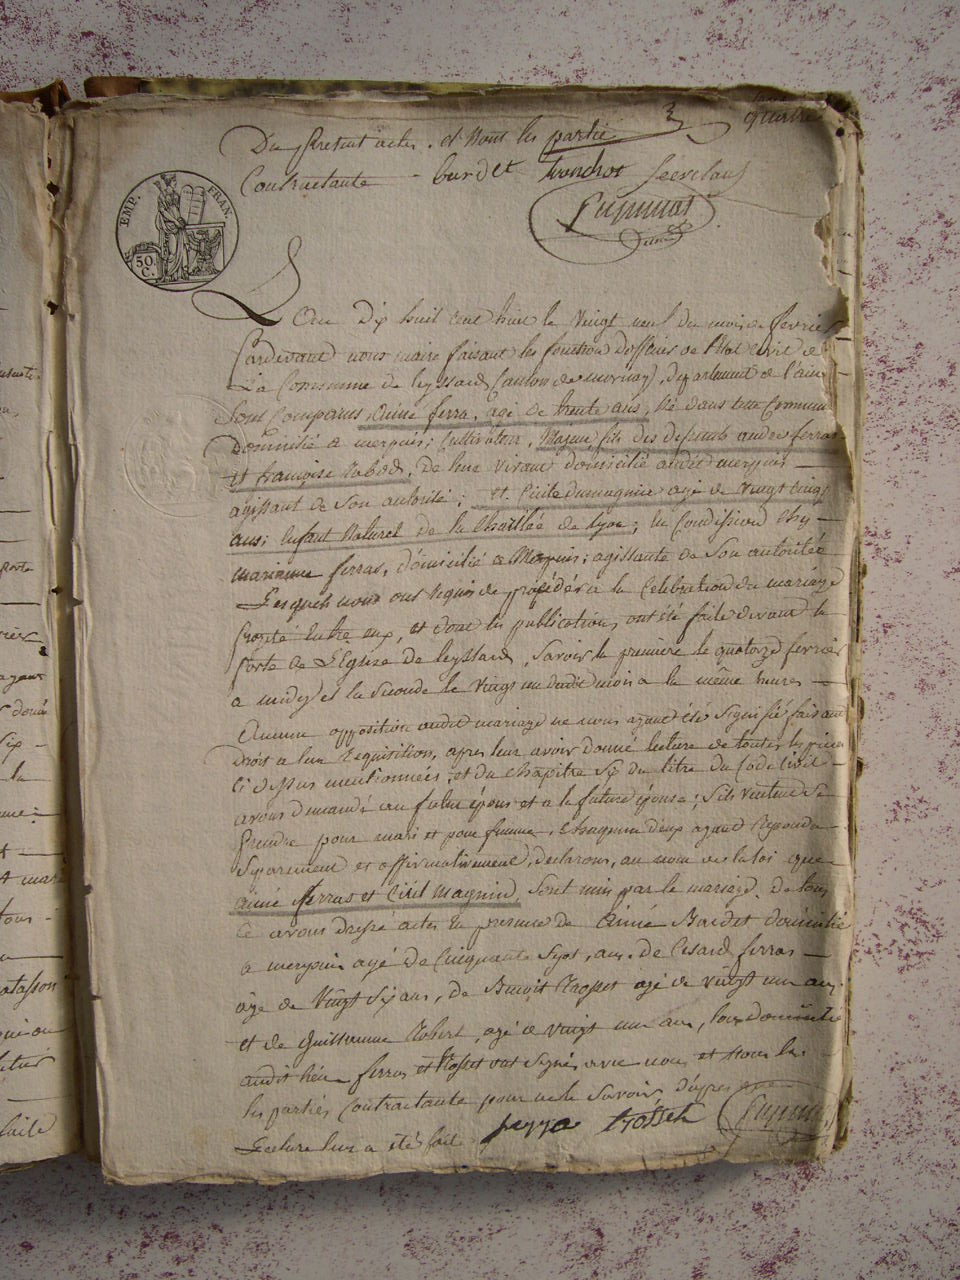 quatre
Du présent actes. et Nont les partie
Contractante burdet tronchot
EMP. FRAN.
50 C.
L'an Dix huit cent huit le vingt neuf du mois de fevrier
Pardevant nous maire faisant les fonction d'officier de l'Etat Civil de
La Commune de leyssard Canton de mornay, departement de l'ain
Sont Comparus, aimé ferra, agé de trente ans, né dans cette Commune
Domicilié a merpuis, Cultivateur, Majeur fils des defunts ferras
et françoise de leur vivant domicilié audit merpuis
agissant de Son autorité; et Cicile dumagnin agé de vingt cinq
ans, enfant Naturel de la Charitée de lyon, en Condission chez
marianne ferras, domicilié a Merpuis; agissante de Son autoritée
Lesquels nous ont requis de procéder a la Celebration du mariage
projeté entre eux, et dont les publication ont été faite devant la
porte de L'Eglise de leyssard, Savoir la premiere le quatorze fevrier
a midy et la Seconde le vingt un dudit mois a la même heures
Aucune opposition audit mariage ne nous ayant été Signifié faisant
Droit a leur requisition, apres leur avoir donné lecture de toutes les pieces
Ci dessus mentionnées, et du Chapitre Six du titre du Code Civil
avons demandé au futur époux et a la future épouse; Sils veulent Se
Prendre pour mari et pour femme, Chaquun d'eux ayant repondu
Séparément et affirmativement, declarons, au nom de la loi que
aimé ferras et Cicil Magnin, Sont unis par le mariage. De tout
Ce avons dressé actes en presence de Aimé Burdet domicilié
a merpuis agé de Cinquante Sept, ans. de Cesard ferras
age de Vingt Six ans, de Benoit Rosset agé de vingt un ans
et de Guillaume Robert, agé de vingt un ans, tous domicilié
audit lieu ferras et Rosset ont Signés avec nous et Non les
les parties Contractante pour ne le Savoir, d'apres que
Lecture leur a été fait ferra Rosset